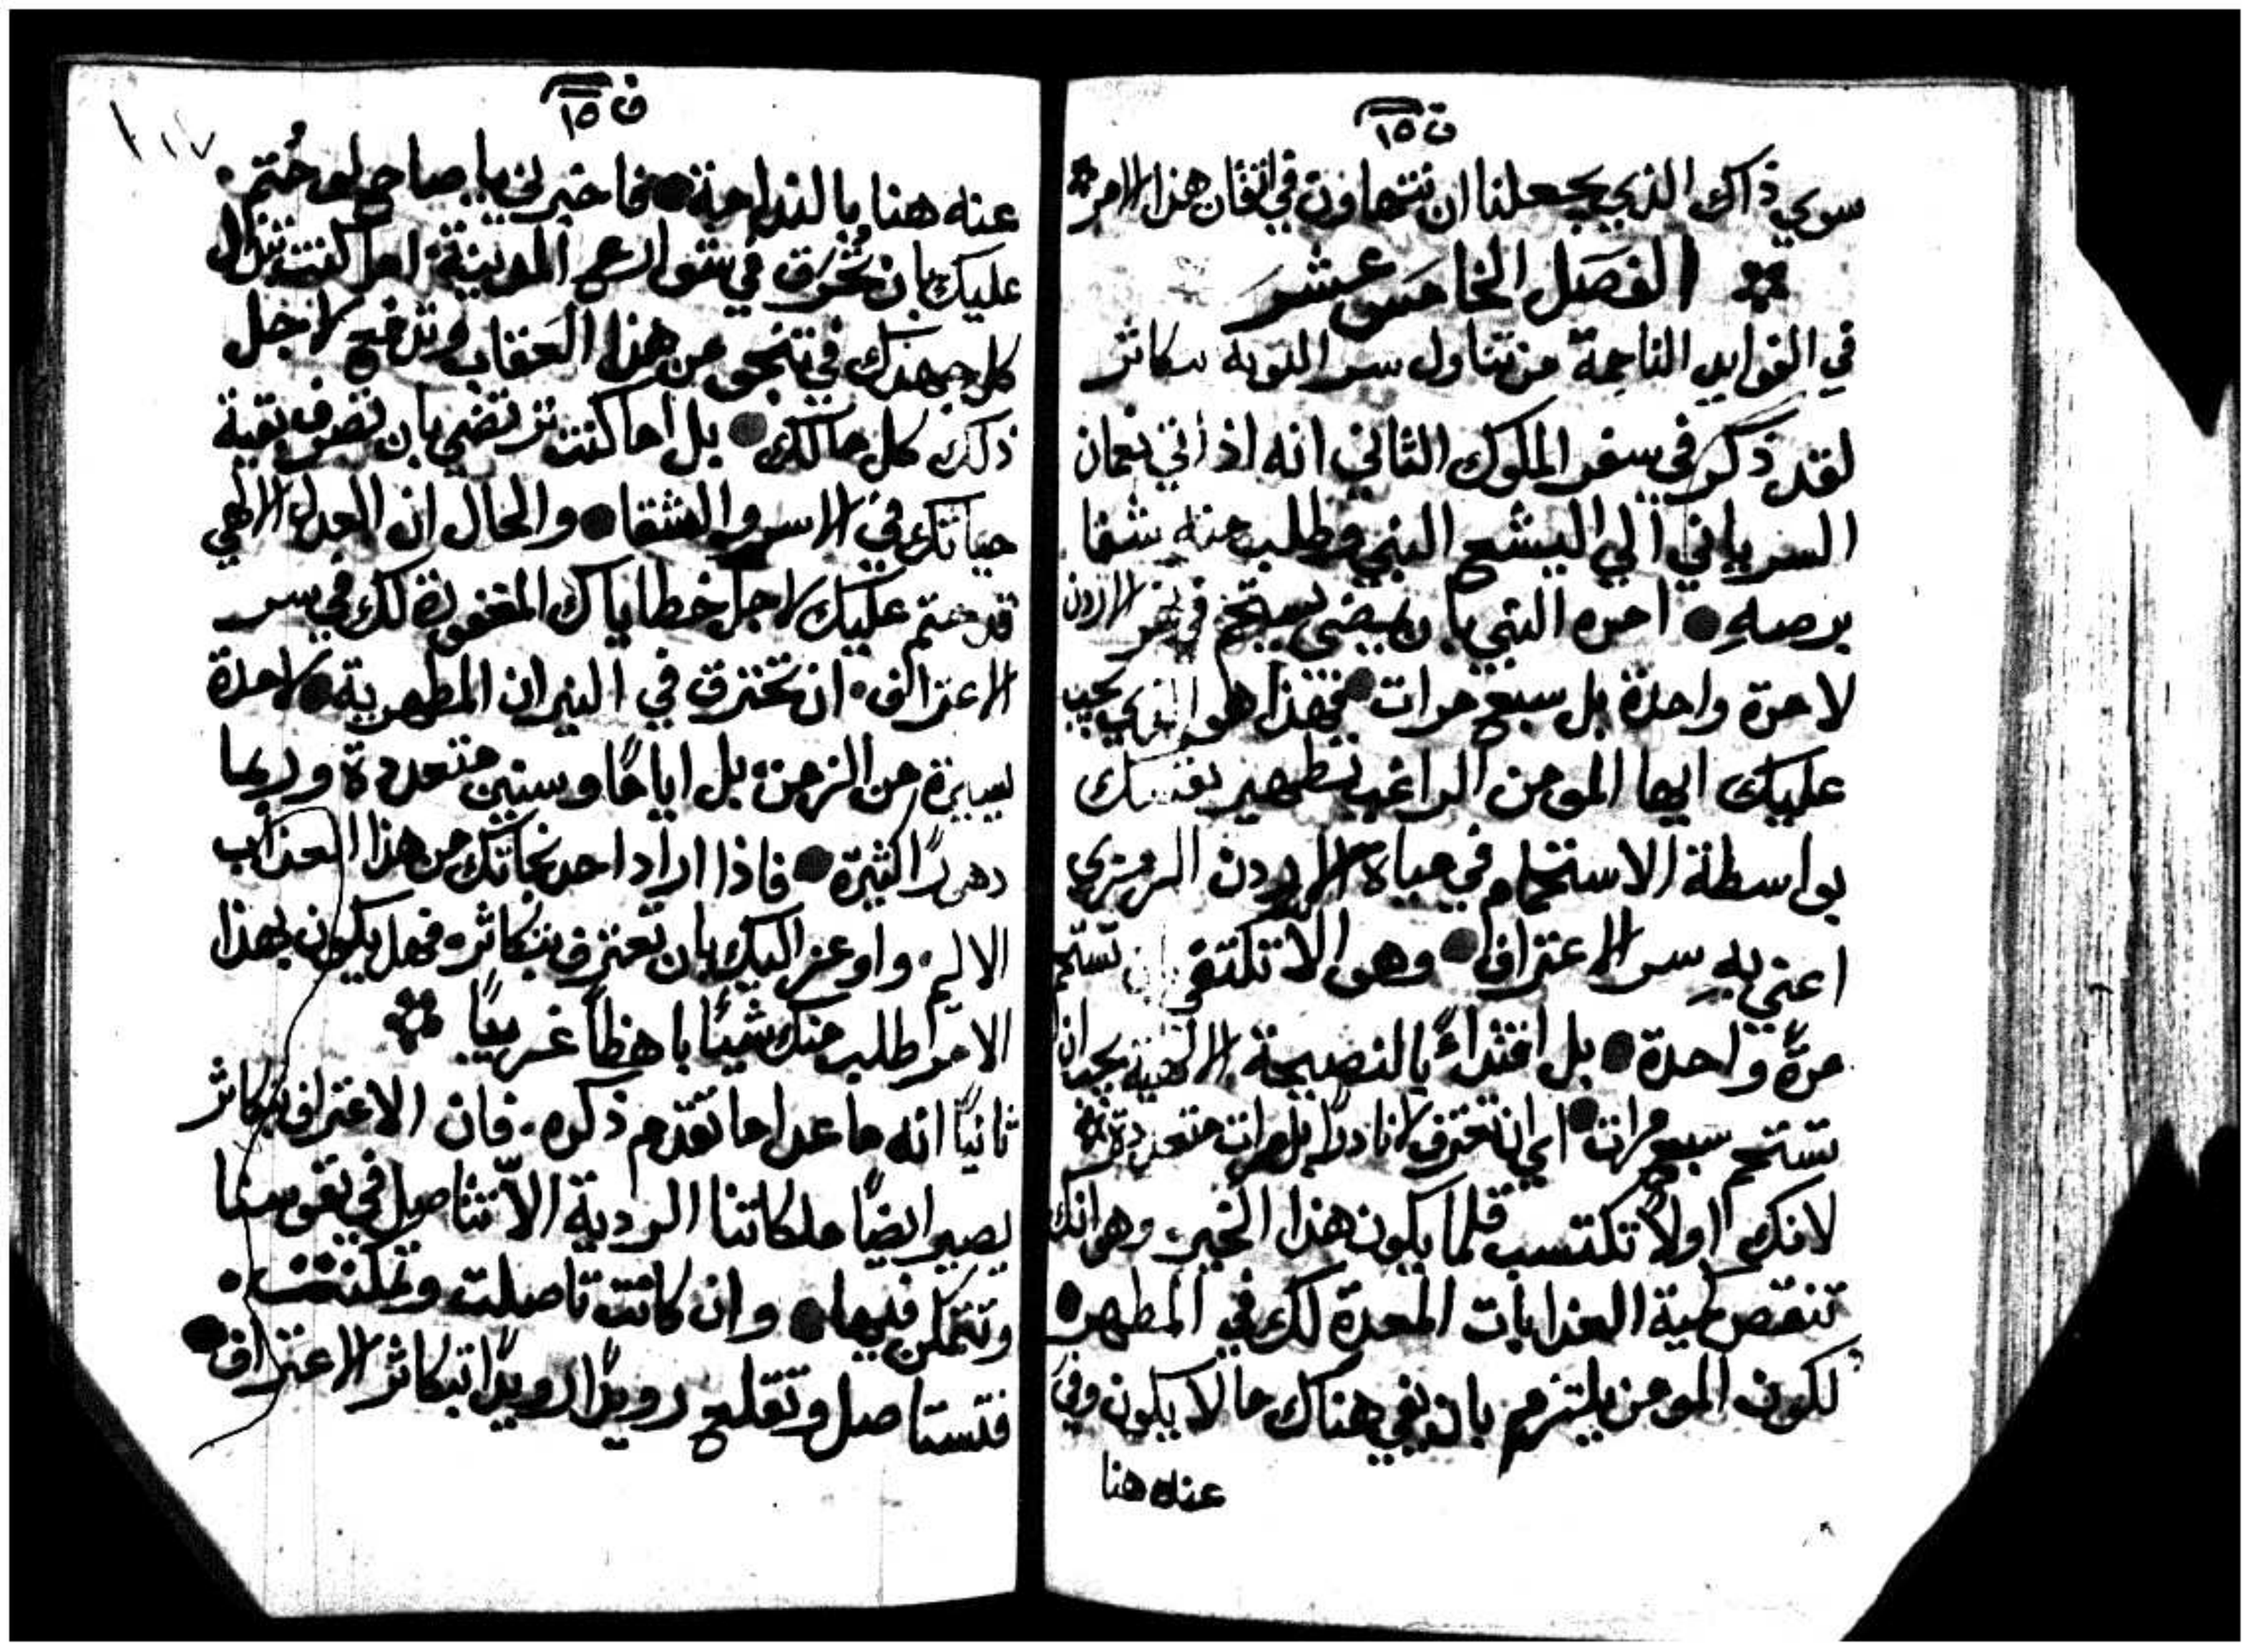 ق ١٥
سوي ذاك الذي يجعلنا ان نتهاون في اتقان هذا الامر
الفصل الخامس عشر
في الفوايد الناجمة من تناول سر التوبة بتكاثر
لقد ذكر في سفر الملوك الثاني انه اذ اتي نعمان
السرياني الي اليشع النبي وطلب منه شفا
برصهِ امره النبي بان يمضي يستحم في نهر الاردن
لا مرة واحدة بل سبع مرات فهذا هو الذي يجب
عليك ايها المومن الراغب تطهير نفسك
بواسطة الاستحمام في مياة الاردن الرمزي
اعني بهِ سر الاعتراف وهو الا تكتفي بان تستحم
مرةً واحدة بل اقتداءً بالنصيحة الالهية يجب ان
تستحم سبع مرات اي ان تعترف لا نادرًا بل مرات متعددة
لانك اولاً تكتسب قلما يكون هذا الخير وهو انك
تنقص كمية العذابات المعدة لك في المطهر
لكون المومن يلتزم بان يفي هناك ما لا يكون وفي
عنه هنا
ف ١٥
١٠٧
عنه هنا بالندامة فاخبرني يا صاح لو حُتم
عليك بان تُحرَق في شوارع المدينة اما كنت تبذل
كل جهدك في تنجو من هذا العقاب وتدفع لاجل
ذلك كل مالك بل اما كنت ترتضي بان تصرف بقية
حياتك في الاسر والشقا والحال ان العدل الالهي
قد حتم عليك لاجل خطاياك المغفورة لك في سر
الاعتراف ان تحترق في النيران المطهرية لا مدة
يسيرة من الزمن بل ايامًا وسنين متعددة وربما
دهورًا كثيرة فاذا اراد احد نجاتك من هذا العذاب
الاليم واوعز اليك بان تعترف بتكاثر فهل يكون بهذا
الامر طلب منك شيئًا باهظًا غريبًا
ثانيًا انه ما عدا ما تقدم ذكره فان الاعتراف بتكاثر
يصير ايضًا ملكاتنا الردية الاّ تتاصل في نفوسنا
وتتمكن فيها وان كانت تاصلت وتمكنت
فتستاصل وتقلع رويدًا رويدًا بتكاثر الاعتراف